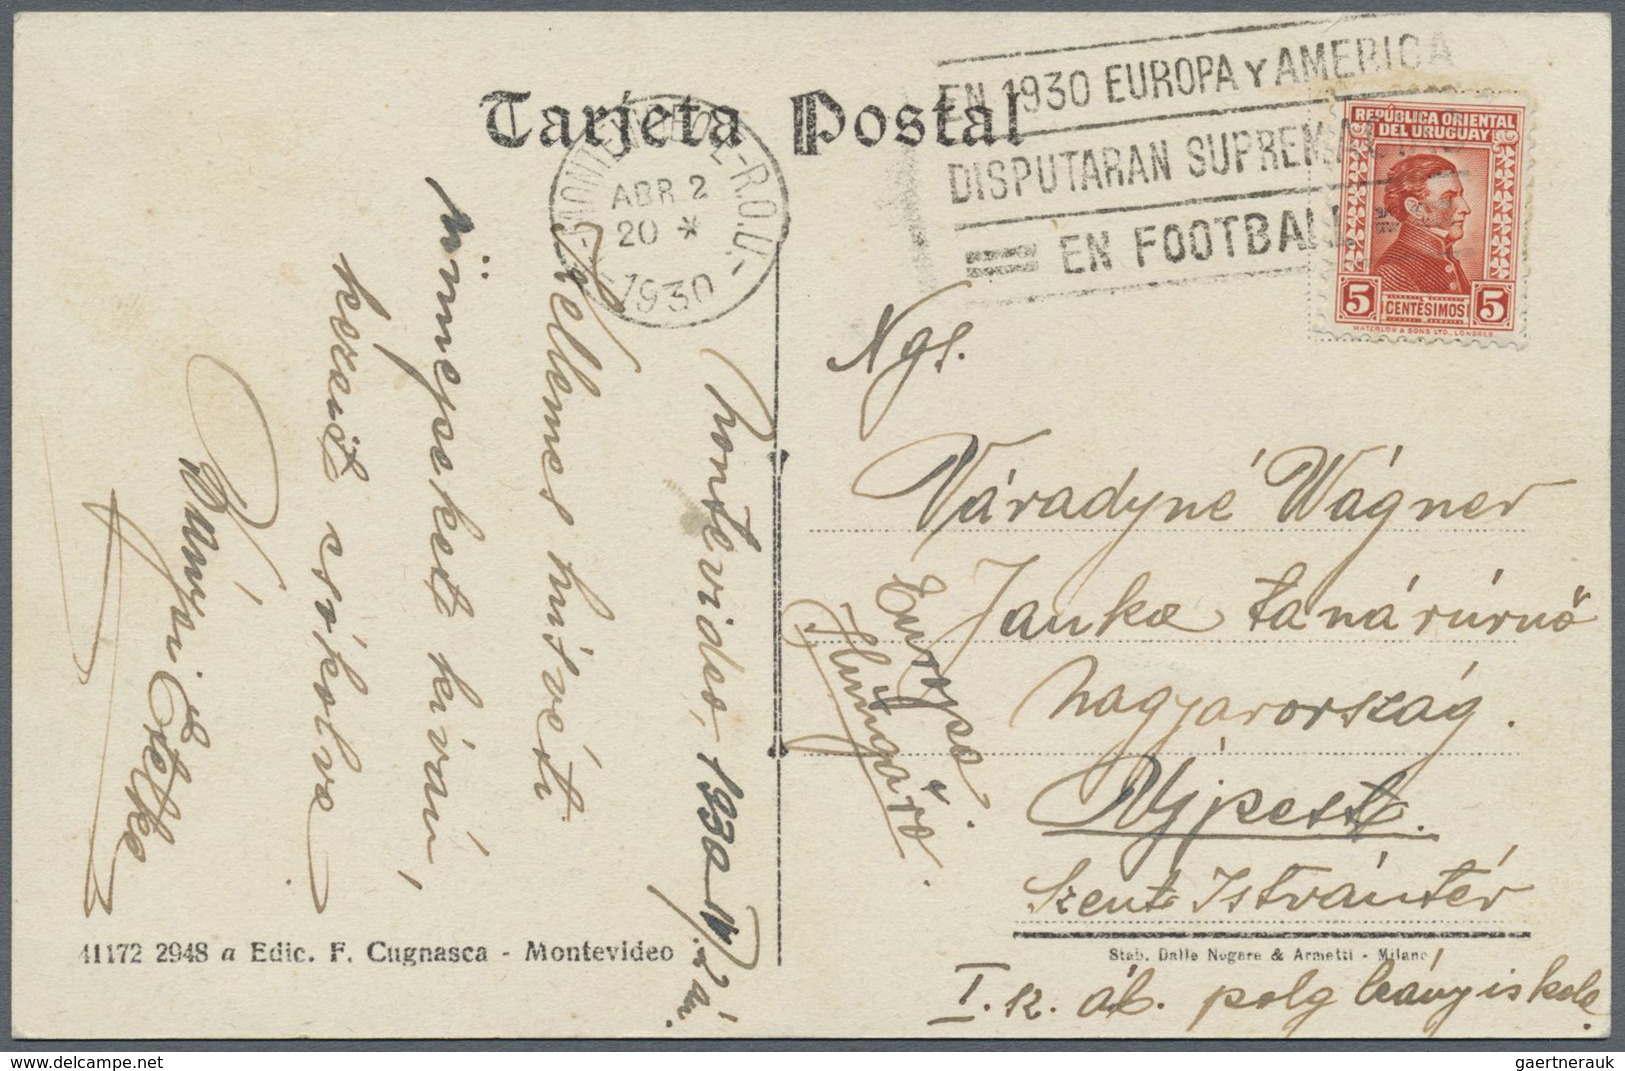 Tarjeta Postal
MONTEVIDEO
R.O.U.
ABR 2
20 *
1930
EN 1930 EUROPA Y AMERICA
DISPUTARAN SUPREMACIA
EN FOOTBALL
REPÚBLICA ORIENTAL
DEL URUGUAY
5 CENTÉSIMOS 5
WATERLOW & SONS LTD., LONDRES
Montevideo, 1930 IV. 2 án.
Kellemes húsvéti
ünnepeket kíván,
kezeit csókolva
Etelka
Ngs.
Váradyné Wágner
Janka tanárúrnő
Magyarország.
Ujpest.
Szent Istvántér
I. k. ál. polg leányiskola.
Európa.
Hungáro.
41172 2948 a Edic. F. Cugnasca - Montevideo
Stab. Dalle Nogare & Armetti - Milano
Delcampe.net
gaertnerauk